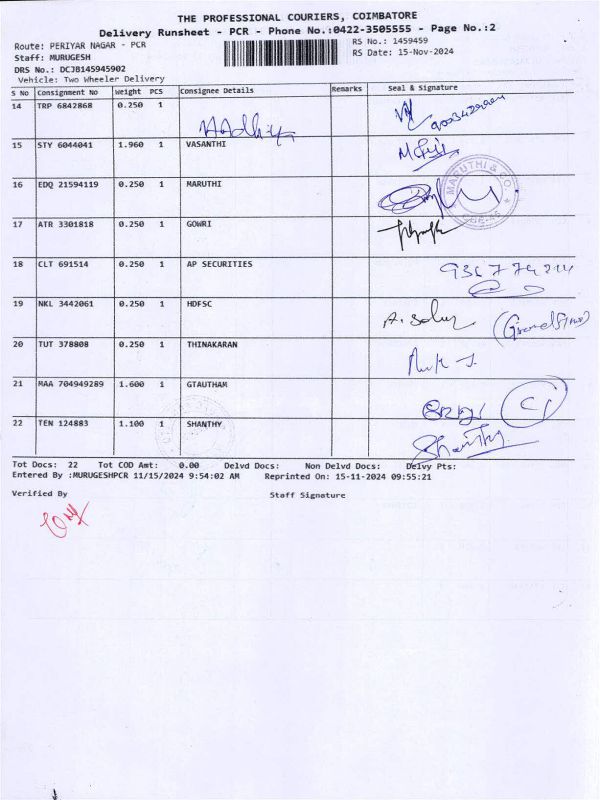 THE PROFESSIONAL COURIERS, COIMBATORE
Delivery Runsheet - PCR - Phone No.:0422-3505555 - Page No.:2
Route: PERIYAR NAGAR - PCR RS No.: 1459459
Staff: MURUGESH RS Date: 15-Nov-2024
DRS No.: DCJB145945902
Vehicle: Two Wheeler Delivery
S No Consignment No Weight PCS Consignee Details Remarks Seal & Signature
14 TRP 6842868 0.250 1
15 STY 6044041 1.960 1 VASANTHI
16 EDQ 21594119 0.250 1 MARUTHI MARUTHI & CO.
17 ATR 3301818 0.250 1 GOWRI
18 CLT 691514 0.250 1 AP SECURITIES
19 NKL 3442061 0.250 1 HDFSC
20 TUT 378808 0.250 1 THINAKARAN
21 MAA 704949289 1.600 1 GTAUTHAM
22 TEN 124883 1.100 1 SHANTHY Shanthy
Tot Docs: 22 Tot COD Amt: 0.00 Delvd Docs: Non Delvd Docs: Delvy Pts:
Entered By :MURUGESHPCR 11/15/2024 9:54:02 AM Reprinted On: 15-11-2024 09:55:21
Verified By Staff Signature